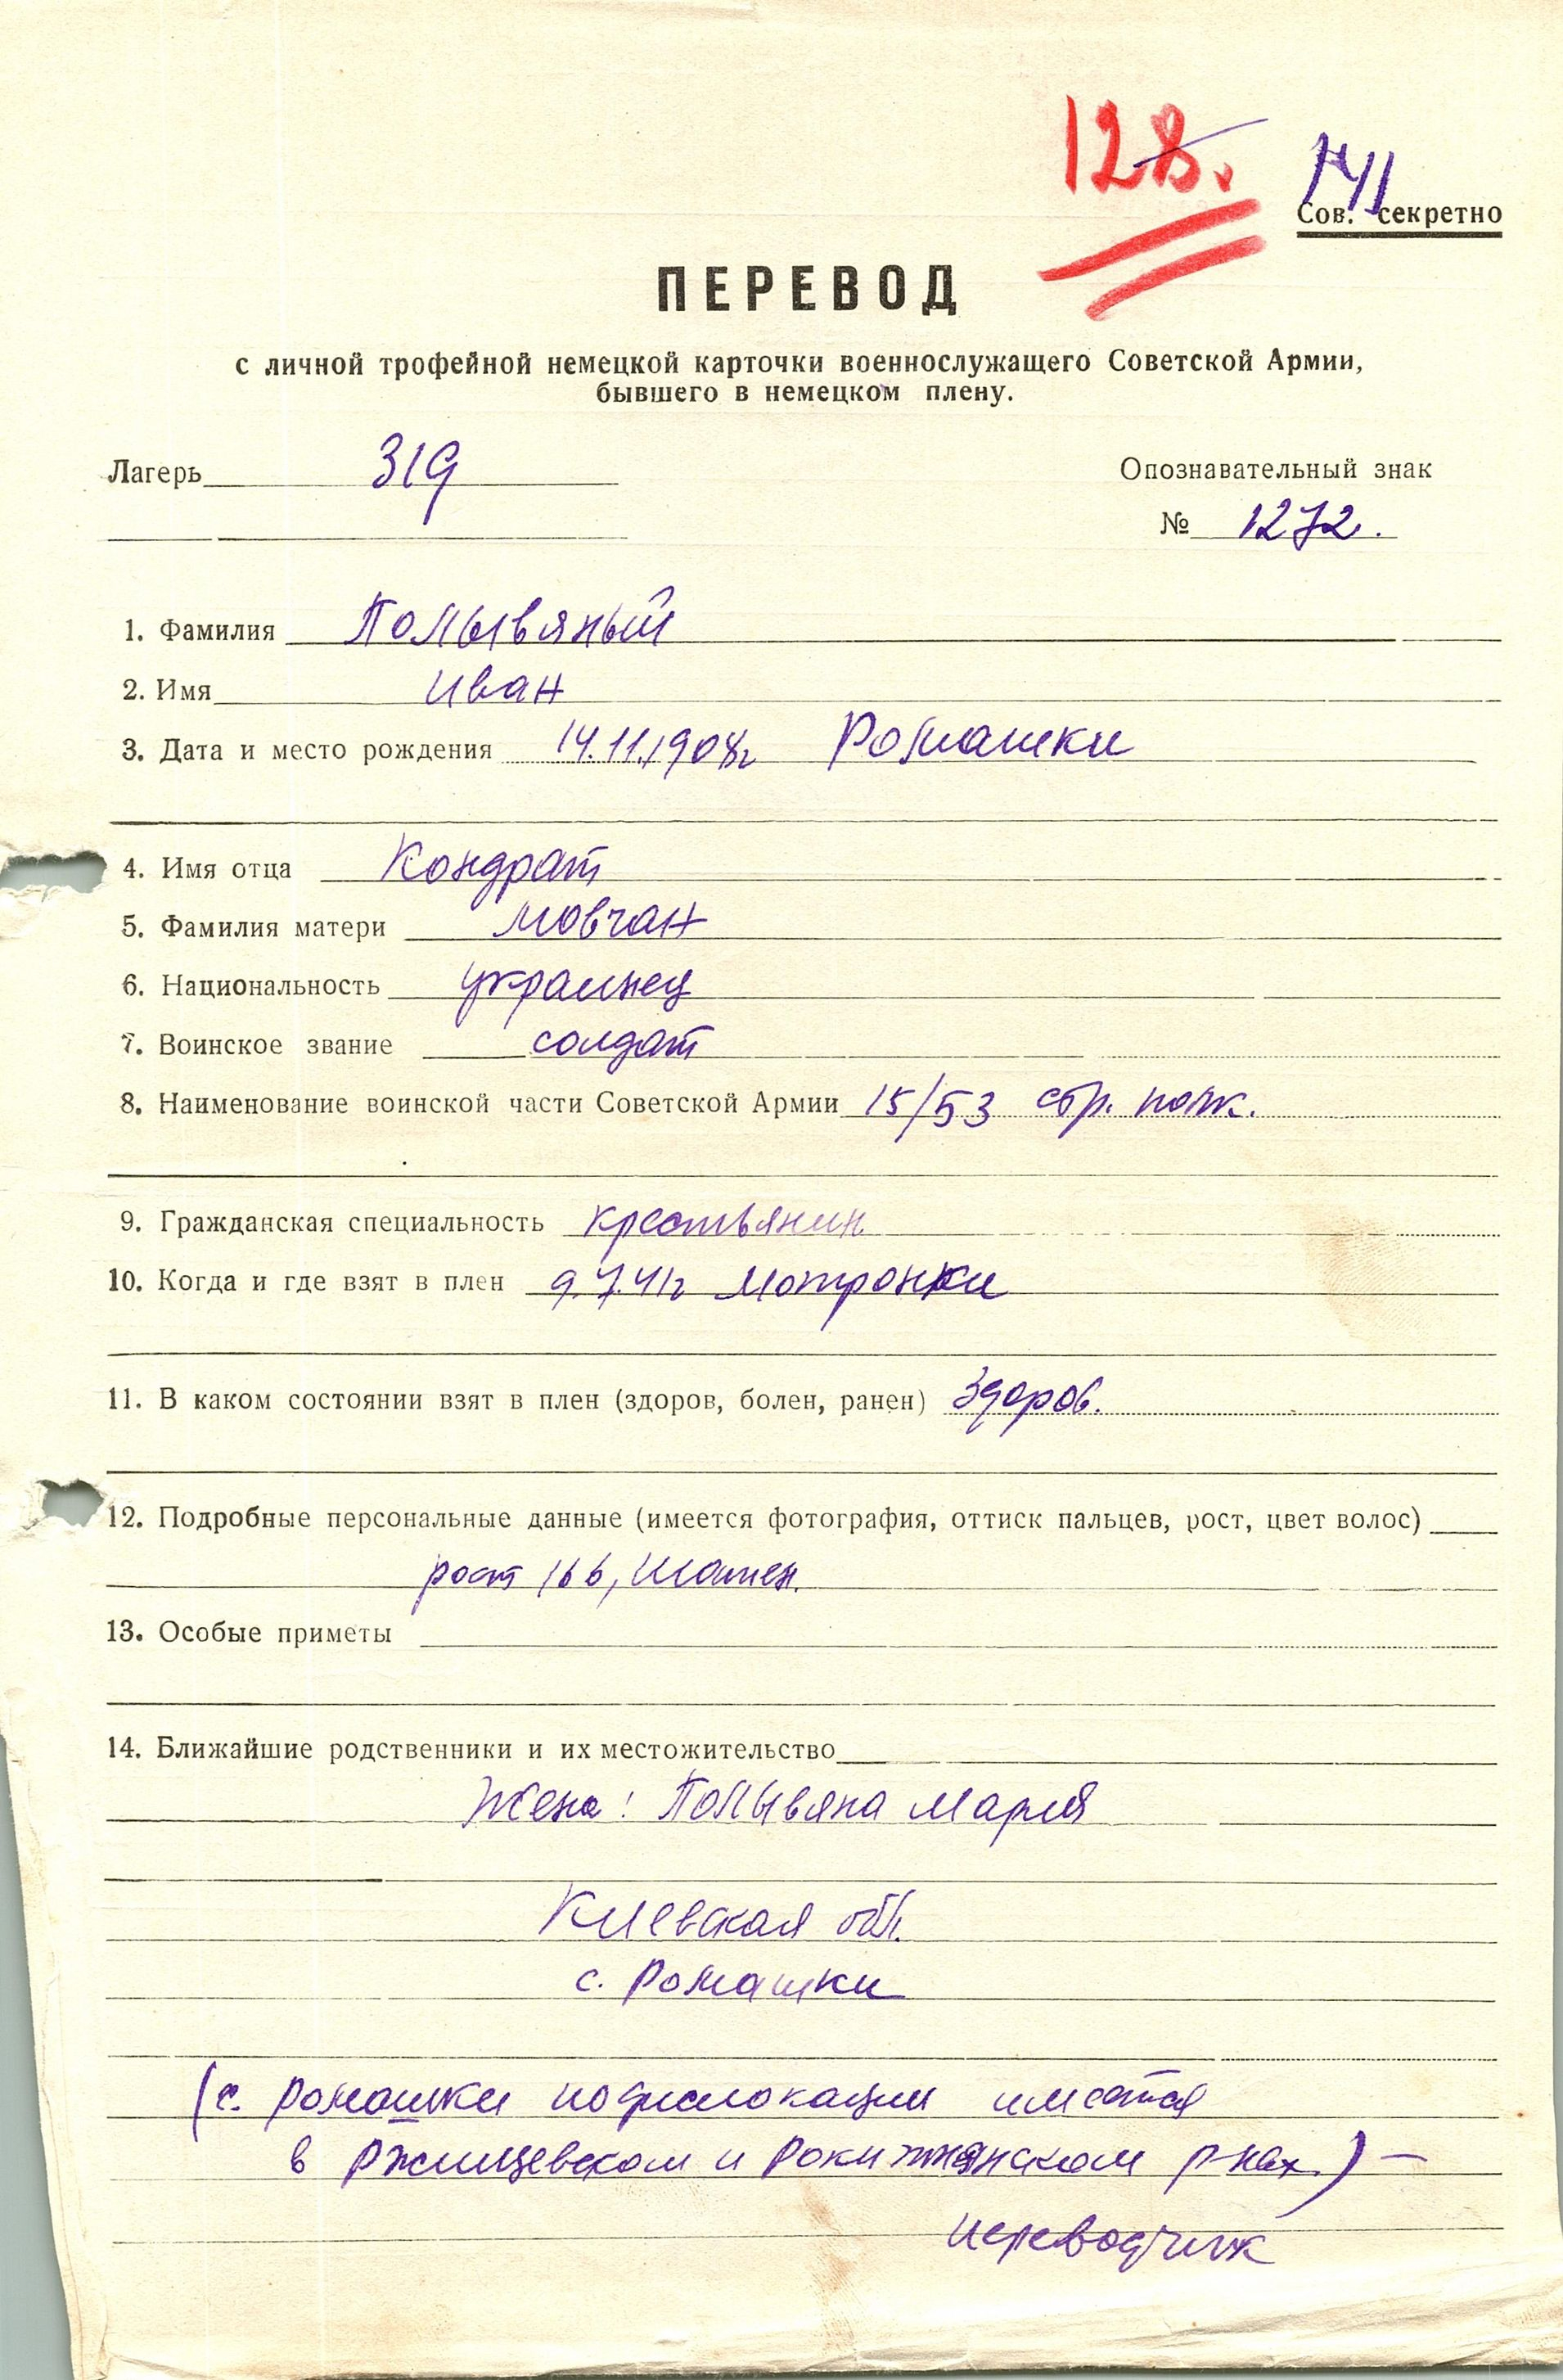 128.
141
Сов. секретно
ПЕРЕВОД
с личной трофейной немецкой карточки военнослужащего Советской Армии,
бывшего в немецком плену.
Лагерь 319
Опознавательный знак
№ 1272.
1. Фамилия Помывяный
2. Имя Иван
3. Дата и место рождения 14.11.1908г Ромашки
4. Имя отца Кондрат
5. Фамилия матери Мовчан
6. Национальность украинец
7. Воинское звание солдат
8. Наименование воинской части Советской Армии 15/53 стр. полк.
9. Гражданская специальность крестьянин
10. Когда и где взят в плен 9.7.41г Мотронки
11. В каком состоянии взят в плен (здоров, болен, ранен) здоров.
12. Подробные персональные данные (имеется фотография, оттиск пальцев, рост, цвет волос)
рост 166, шатен.
13. Особые приметы
14. Ближайшие родственники и их местожительство
Жена: Помывяна Мария
Киевская обл.
с. Ромашки
(с. Ромашки по дислокации имеется
в Ржищевском и Рокитнянском р-нах) —
переводчик